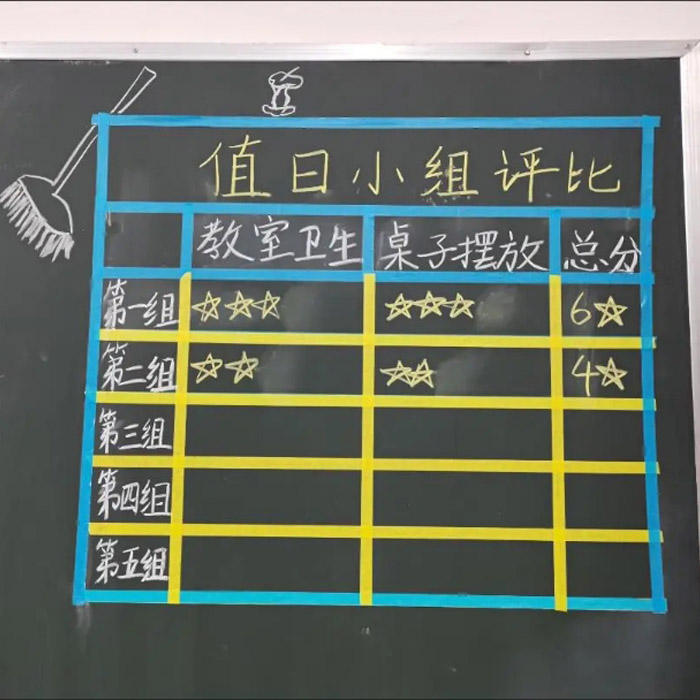 值日小组评比
教室卫生 桌子摆放 总分
第一组 ☆☆☆ ☆☆☆ 6☆
第二组 ☆☆ ☆☆ 4☆
第三组
第四组
第五组